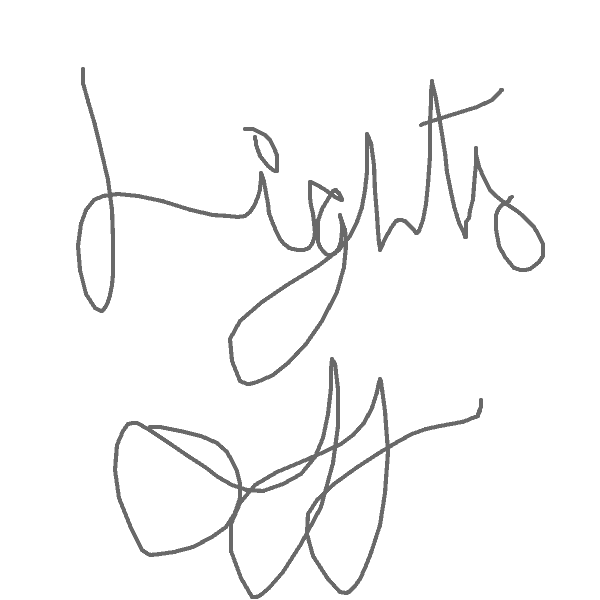 Lights
Off